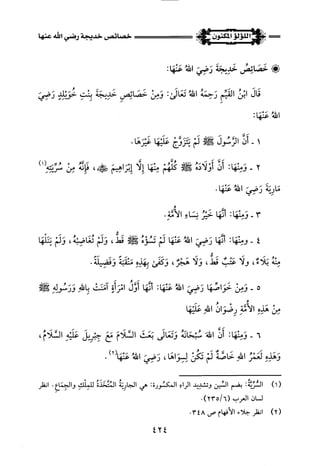 اللؤلؤ المكنون خصائص خديجة رضي الله عنها
خَصَائِصُ خَدِيجَةَ رَضِيَ اللهُ عَنْهَا:
قَالَ ابْنُ القَيِّمِ رَحِمَهُ اللهُ تَعَالَى: وَمِنْ خَصَائِصِ خَدِيجَةَ بِنْتِ خُوَيْلِدٍ رَضِيَ
اللهُ عَنْهَا:
١ - أَنَّ الرَّسُولَ ﷺ لَمْ يَتَزَوَّجْ عَلَيْهَا غَيْرَهَا.
٢ - وَمِنْهَا: أَنَّ أَوْلَادَهُ ﷺ كُلَّهُمْ مِنْهَا إِلَّا إِبْرَاهِيمَ ﷺ، فَإِنَّهُ مِنْ سُرِّيَّتِهِ(١)
مَارِيَةَ رَضِيَ اللهُ عَنْهَا.
٣ - وَمِنْهَا: أَنَّهَا خَيْرُ نِسَاءِ الأُمَّةِ.
٤ - ومِنْهَا: أَنَّهَا رَضِيَ اللهُ عَنْهَا لَمْ تَسُؤْهُ ﷺ قَطُّ، وَلَمْ تُغَاضِبْهُ، وَلَمْ يَنَلْهَا
مِنْهُ إِيلَاءٌ، ولَا عَتْبٌ قَطُّ، وَلَا هَجْرٌ، وَكَفَى بِهَذِهِ مَنْقَبَةً وَفَضِيلَةً.
٥ - وَمِنْ خَوَاصِّهَا رَضِيَ اللهُ عَنْهَا: أَنَّهَا أَوَّلُ امْرَأَةٍ آمَنَتْ بِاللهِ وَرَسُولِهِ ﷺ
مِنْ هَذِهِ الأُمَّةِ رِضْوَانُ اللهِ عَلَيْهَا
٦ - وَمِنْهَا: أَنَّ اللهَ سُبْحَانَهُ وَتَعَالَى بَعَثَ السَّلَامَ مَعَ جِبْرِيلَ عَلَيْهِ السَّلَامُ،
وَهَذِهِ لَعَمْرُ اللهِ خَاصَّةٌ لَمْ تَكُنْ لِسِوَاهَا، رَضِيَ اللهُ عَنْهَا(٢).
(١) السُّرِّيَّةُ: بضم السِّين وتشديد الراء المكسُورة: هي الجَارِيَةُ المُتَّخَذَةُ للمِلْكِ والجِمَاعِ. انظر
لسان العرب (٦/٢٣٥).
(٢) انظر جلاء الأفهام ص ٣٤٨.
٤٢٤